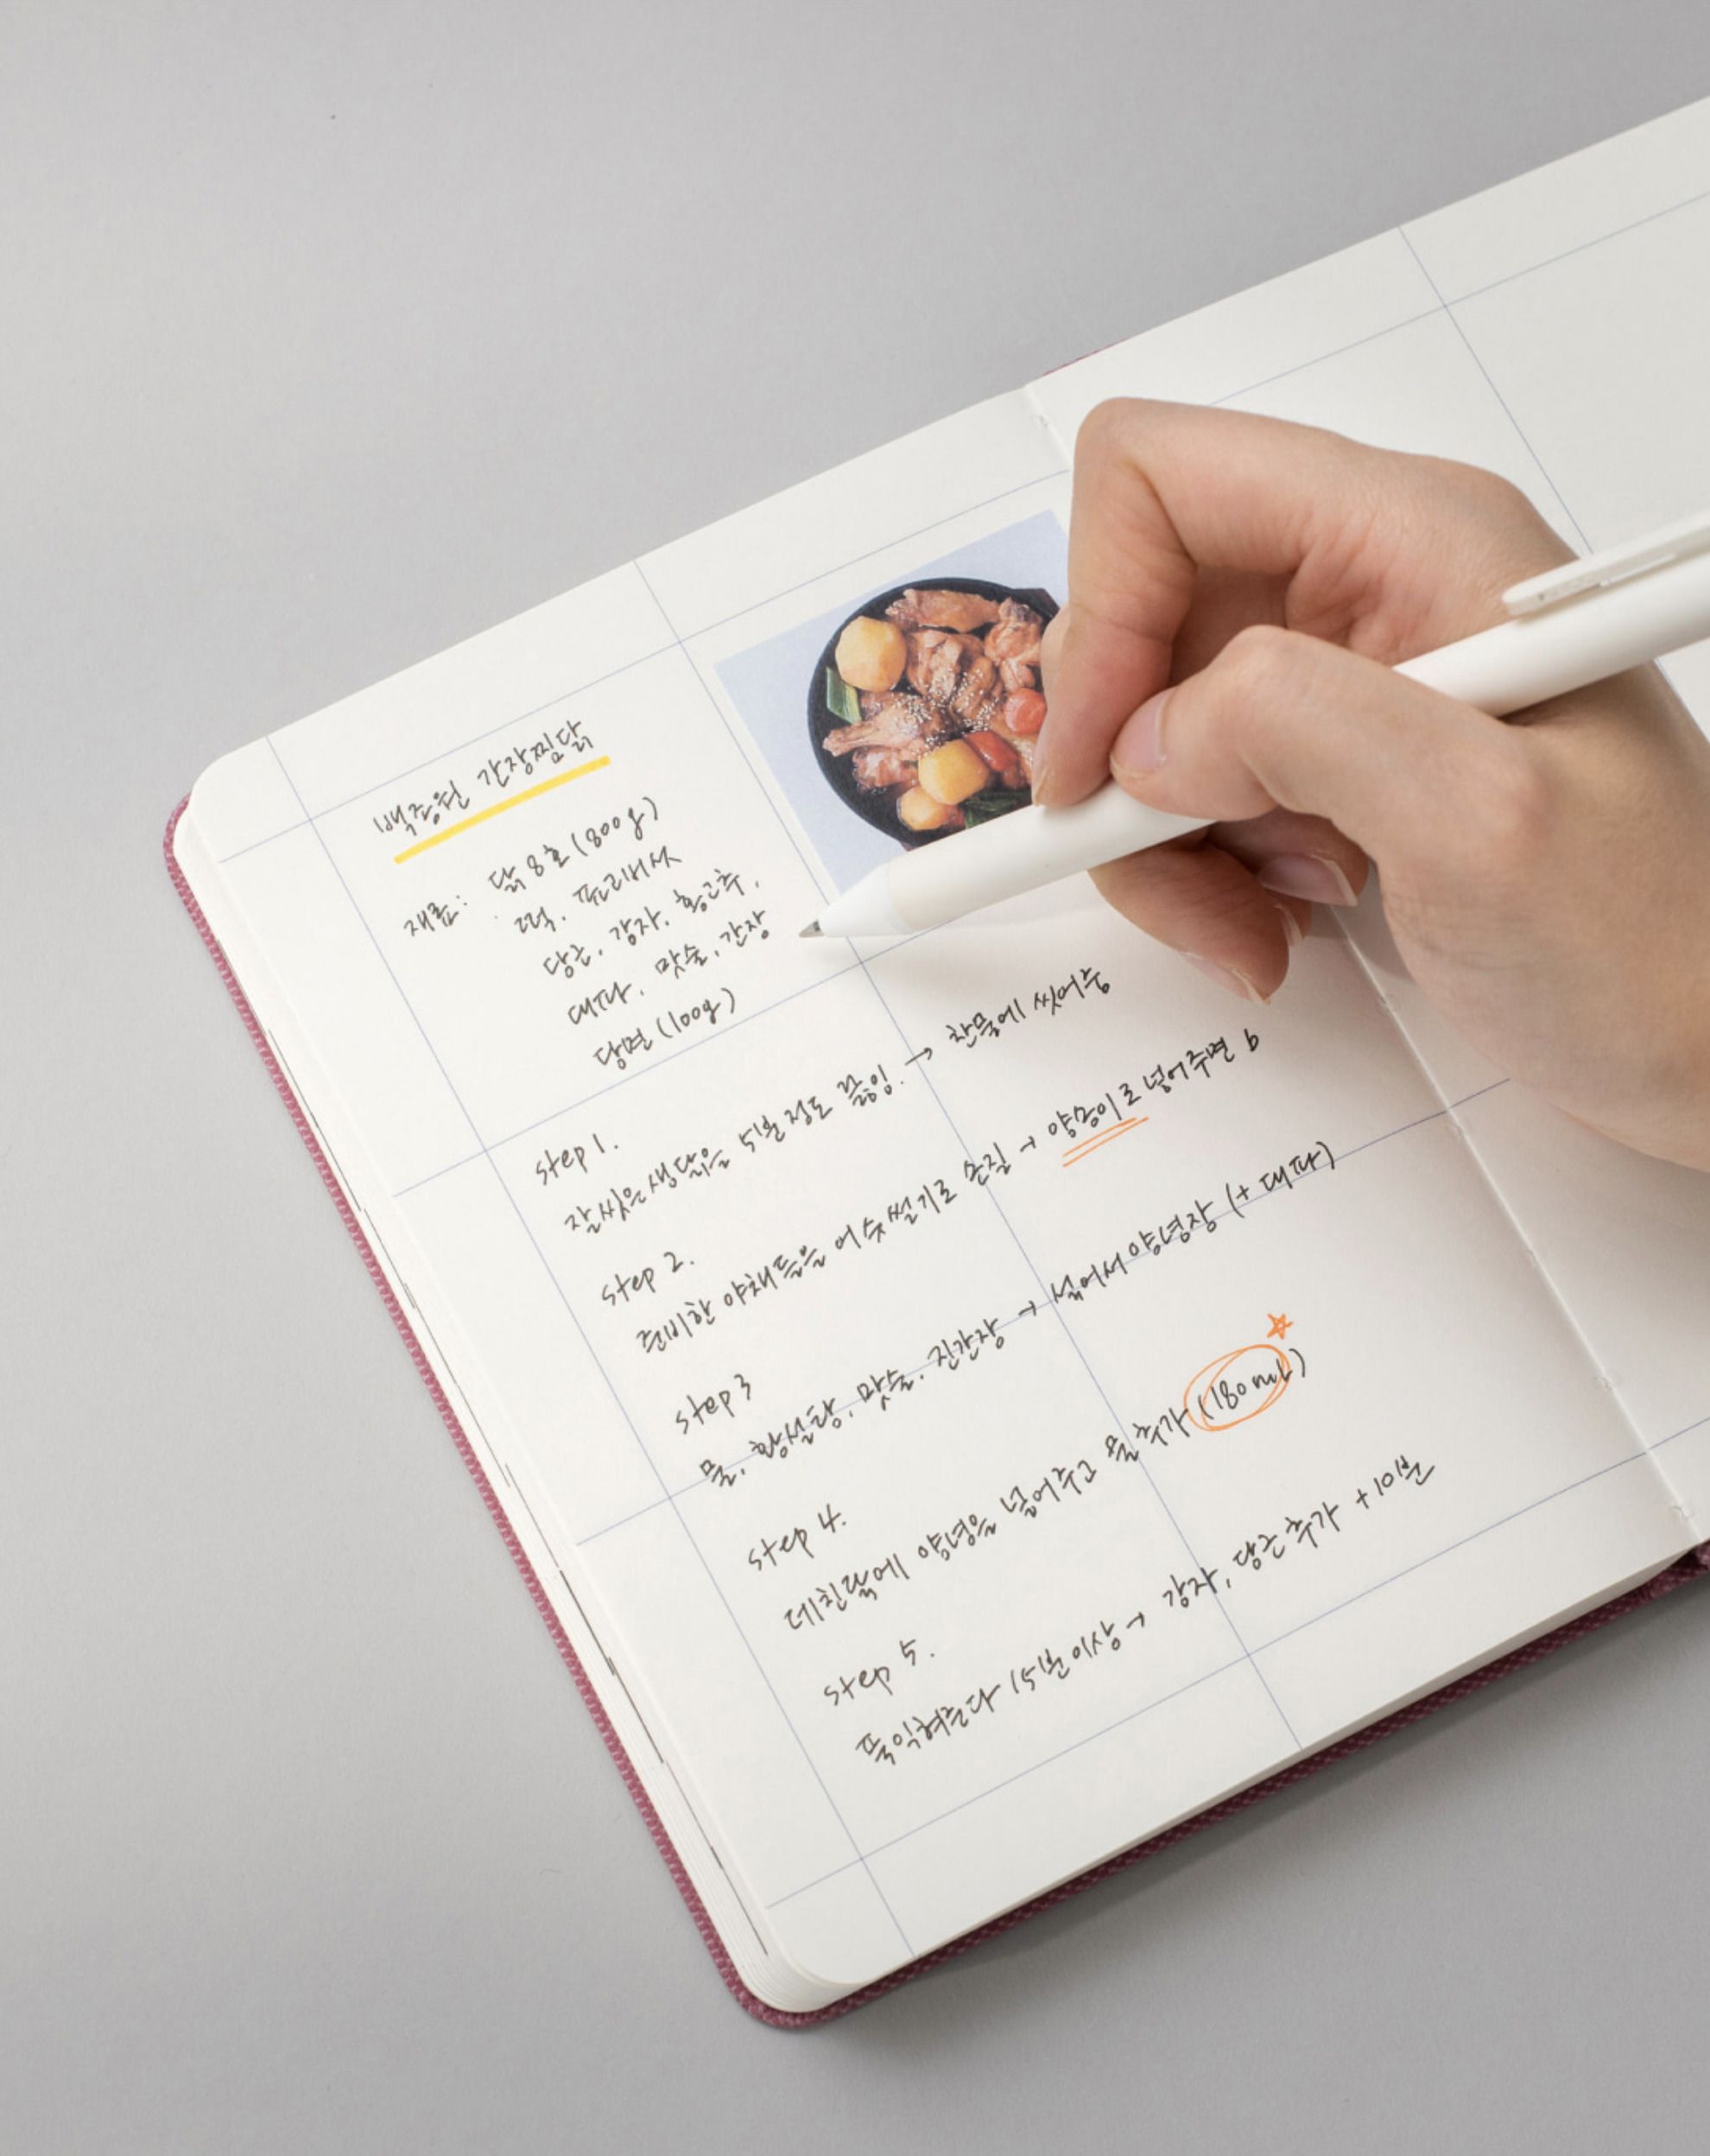 백종원 간장찜닭
재료: 닭 8호 (800g)
떡. 표고버섯
당근. 감자. 홍고추.
대파. 맛술. 간장
당면 (100g)
step 1.
잘 씻은 생닭을 5분 정도 끓임. → 찬물에 씻어줌
step 2.
준비한 야채들을 어슷썰기로 손질 → 양송이로 넣어주면 b
step 3
물. 황설탕. 맛술. 진간장 → 섞어서 양념장 (+ 대파)
step 4.
데친닭에 양념을 넣어주고 물 추가 (180ml)
step 5.
푹익혀준다 15분 이상 → 감자, 당근 추가 + 10분